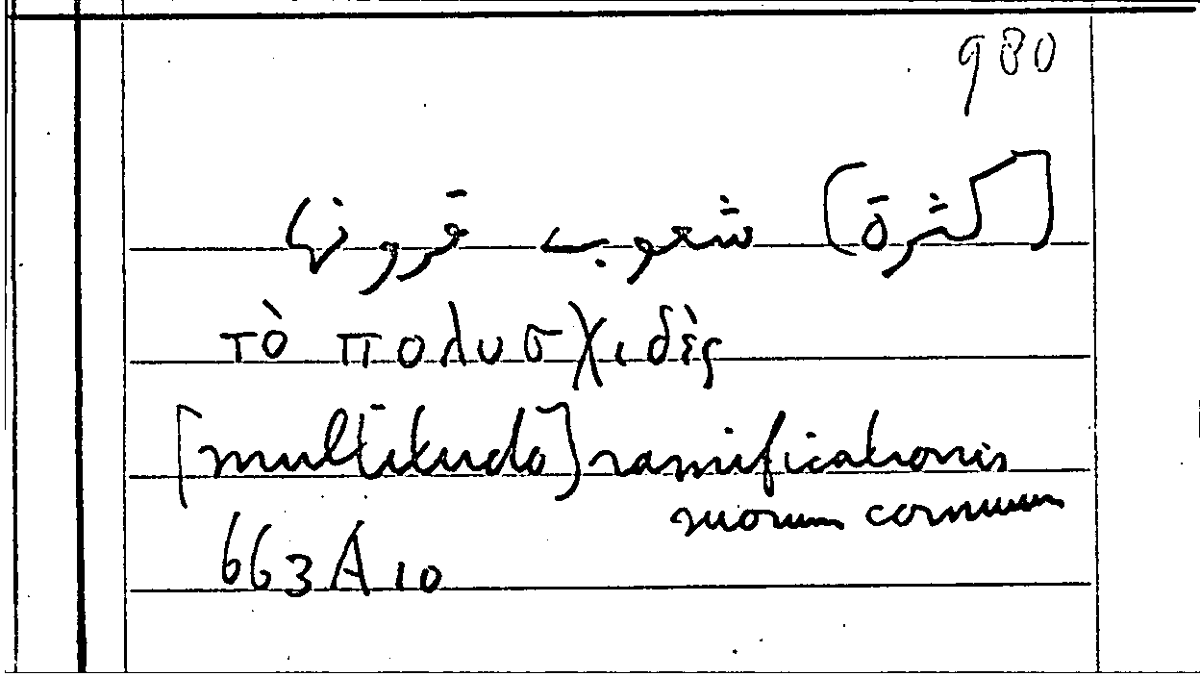 980
[كثرة) شعوب قرونها
τὸ πολυσχιδὲς
[multitudo] ramificationis
suorum cornuum
663A10